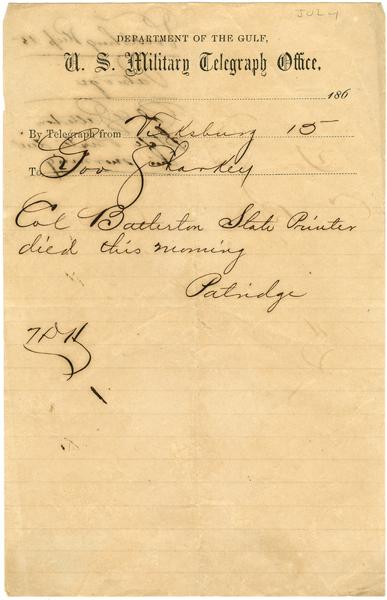 JUL 4
DEPARTMENT OF THE GULF,
U. S. Military Telegraph Office,
186
By Telegraph from Vicksburg 15
To Gov Sharkey
Col Batterton State Printer
died this morning
Patridge